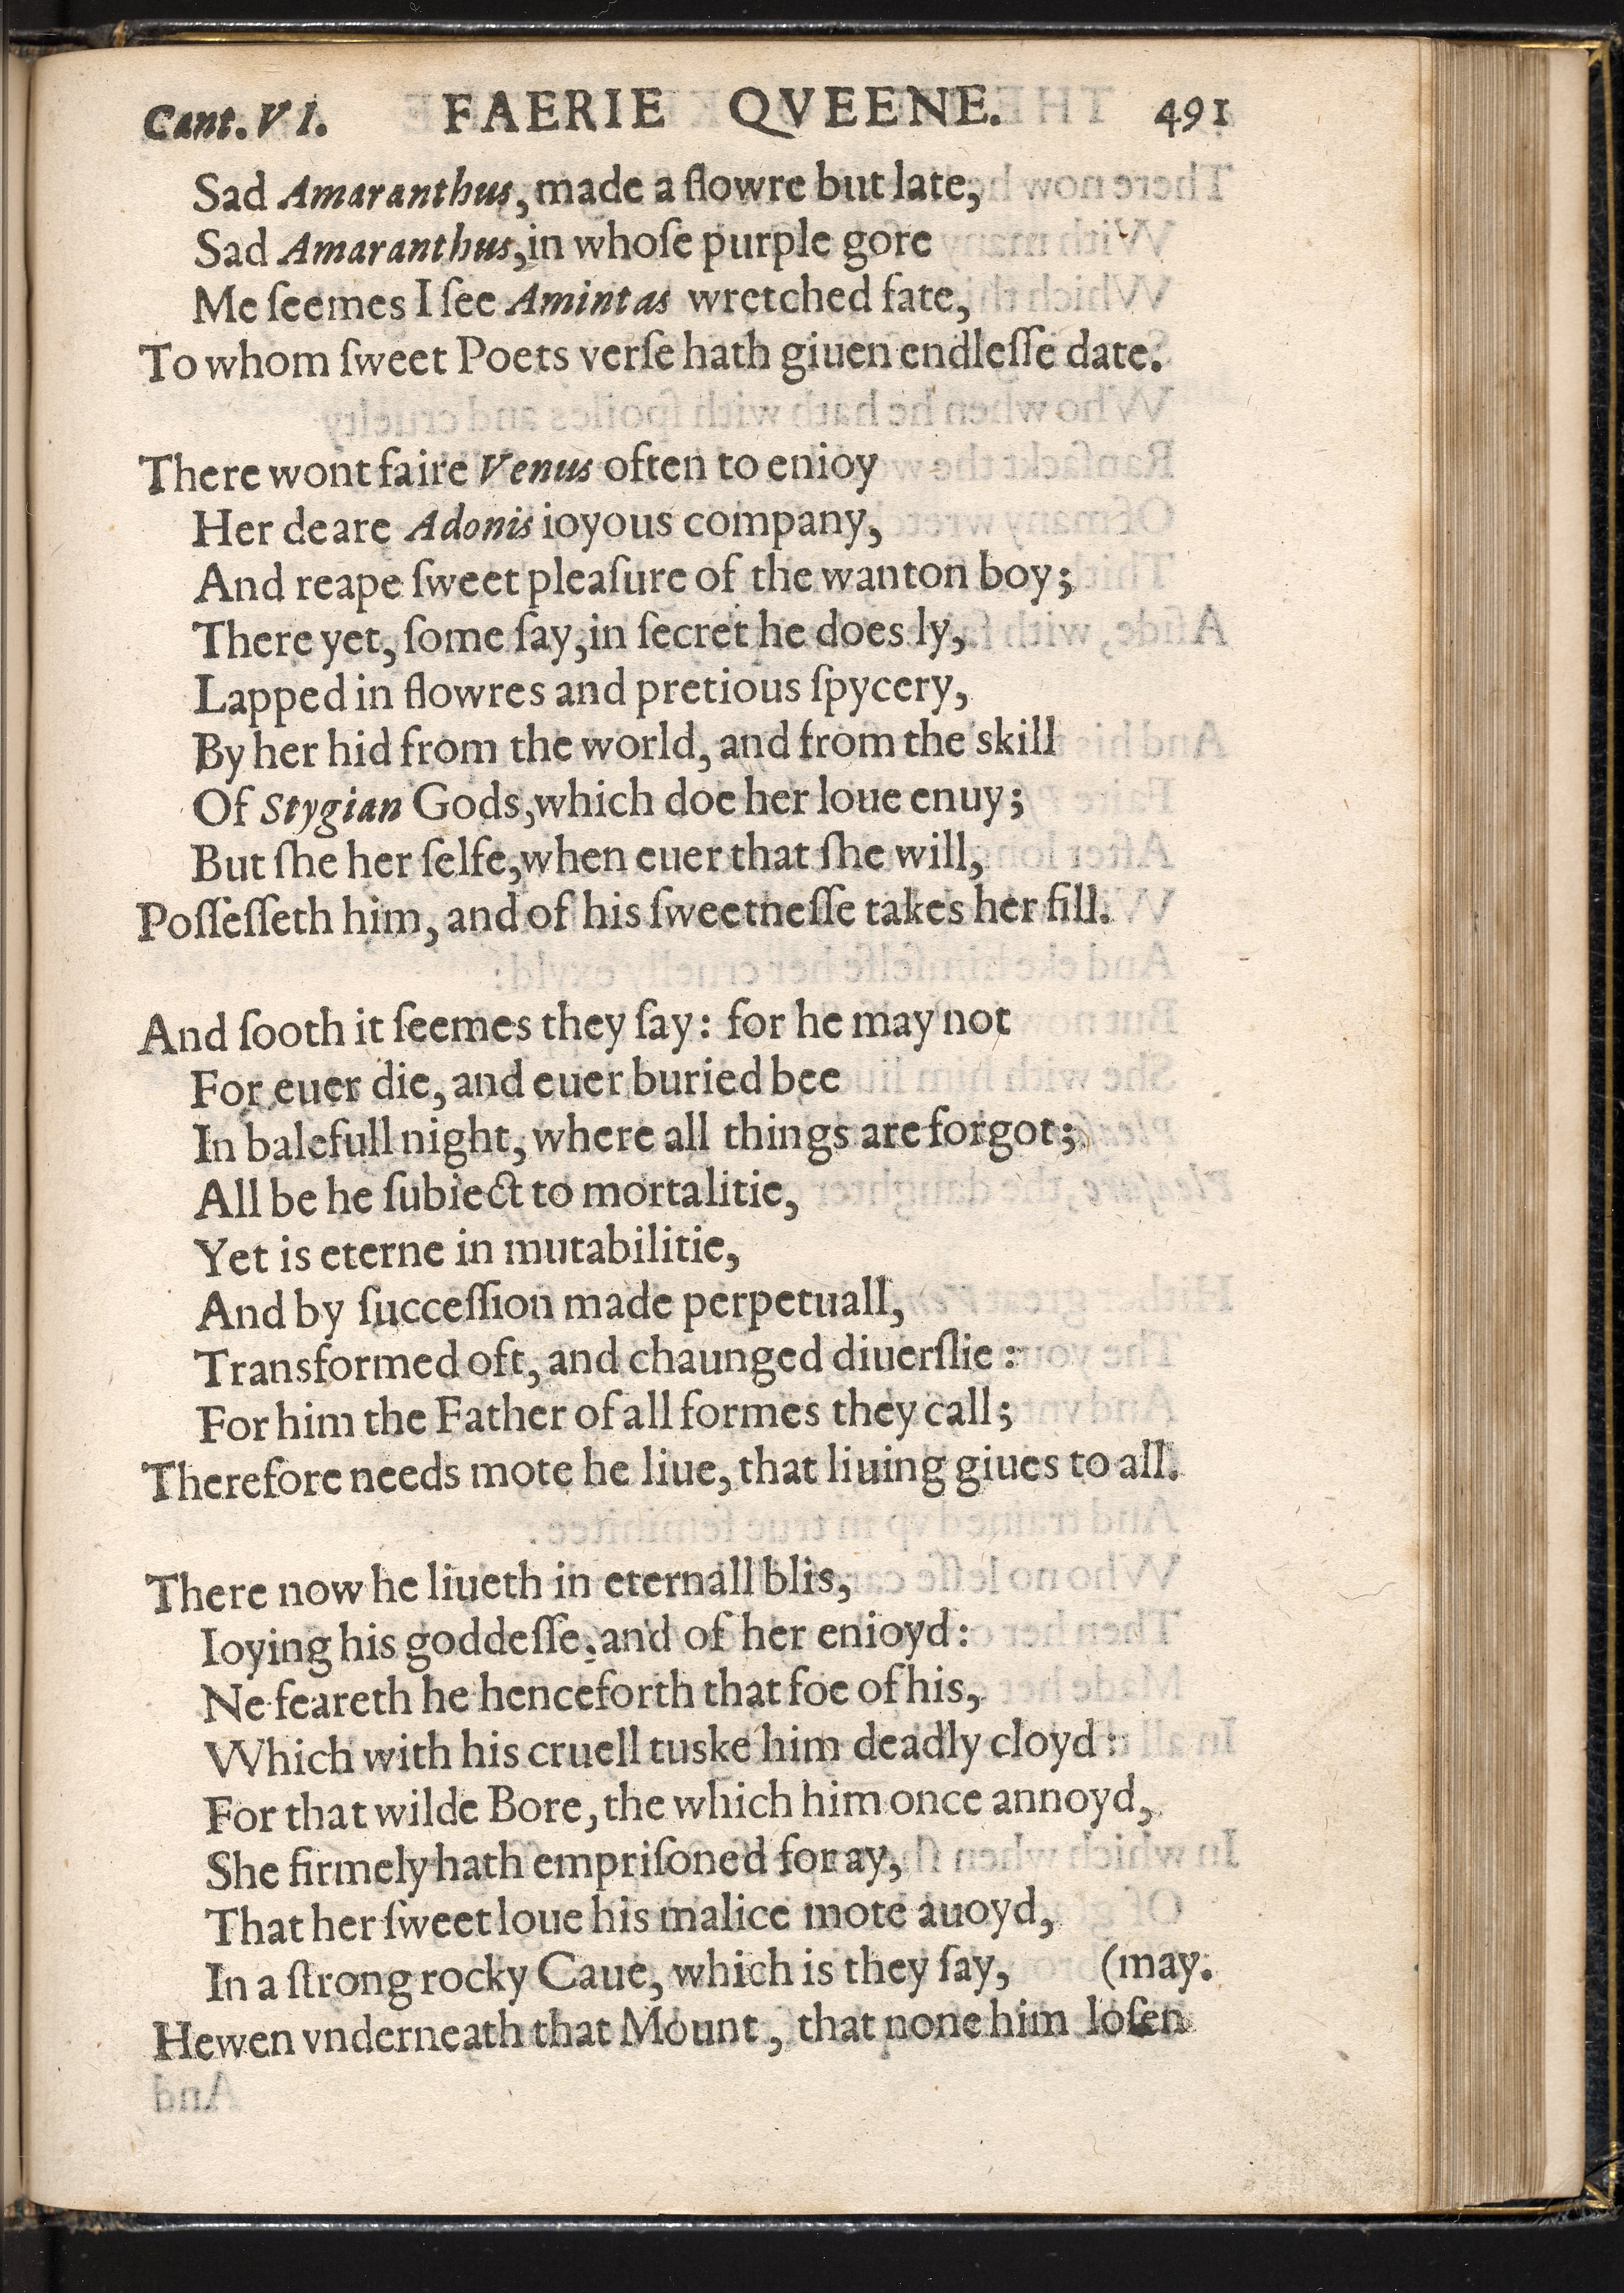 Cant. VI. FAERIE QVEENE. 491
Sad Amaranthus, made a flowre but late,
Sad Amaranthus, in whoſe purple gore
Me ſeemes I ſee Amintas wretched fate,
To whom ſweet Poets verſe hath giuen endleſſe date.
There wont faire Venus often to enioy
Her deare Adonis ioyous company,
And reape ſweet pleaſure of the wanton boy;
There yet, ſome ſay, in ſecret he does ly,
Lapped in flowres and pretious ſpycery,
By her hid from the world, and from the skill
Of Stygian Gods, which doe her loue enuy;
But ſhe her ſelfe, when euer that ſhe will,
Poſſeſſeth him, and of his ſweetneſſe takes her fill.
And ſooth it ſeemes they ſay: for he may not
For euer die, and euer buried bee
In balefull night, where all things are forgot;
All be he ſubiect to mortalitie,
Yet is eterne in mutabilitie,
And by ſucceſſion made perpetuall,
Transformed oft, and chaunged diuerſlie:
For him the Father of all formes they call;
Therefore needs mote he liue, that liuing giues to all.
There now he liueth in eternall blis,
Ioying his goddeſſe, and of her enioyd:
Ne feareth he henceforth that foe of his,
Which with his cruell tuske him deadly cloyd:
For that wilde Bore, the which him once annoyd,
She firmely hath empriſoned for ay,
That her ſweet loue his malice mote auoyd,
In a ſtrong rocky Caue, which is they ſay, (may.
Hewen vnderneath that Mount, that none him loſen